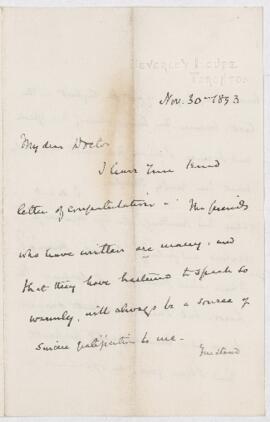 BEVERLEY HOUSE
TORONTO
Nov. 30th 1893
My dear Doctor
I have your kind
letter of congratulation – The friends
who have written are many, and
that they have hastened to speak so
warmly, will always be a source of
sincere gratification to me –